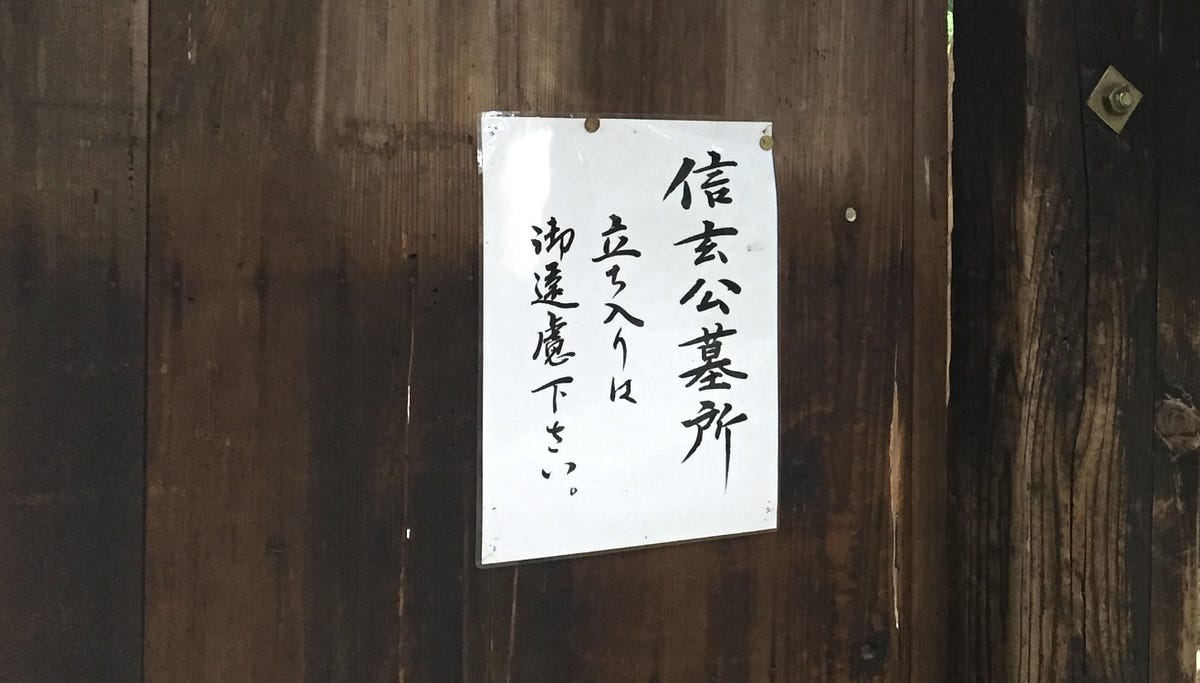 信玄公墓所
立ち入りは
御遠慮下さい。